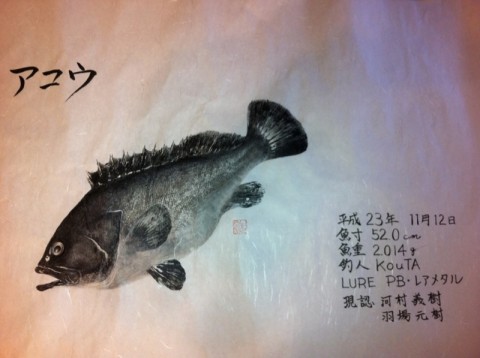 アコウ
平成23年 11月12日
魚寸 520cm
魚重 2.014g
釣人 KouTA
LURE PB・レアメタル
現認 河村義樹
羽場元樹